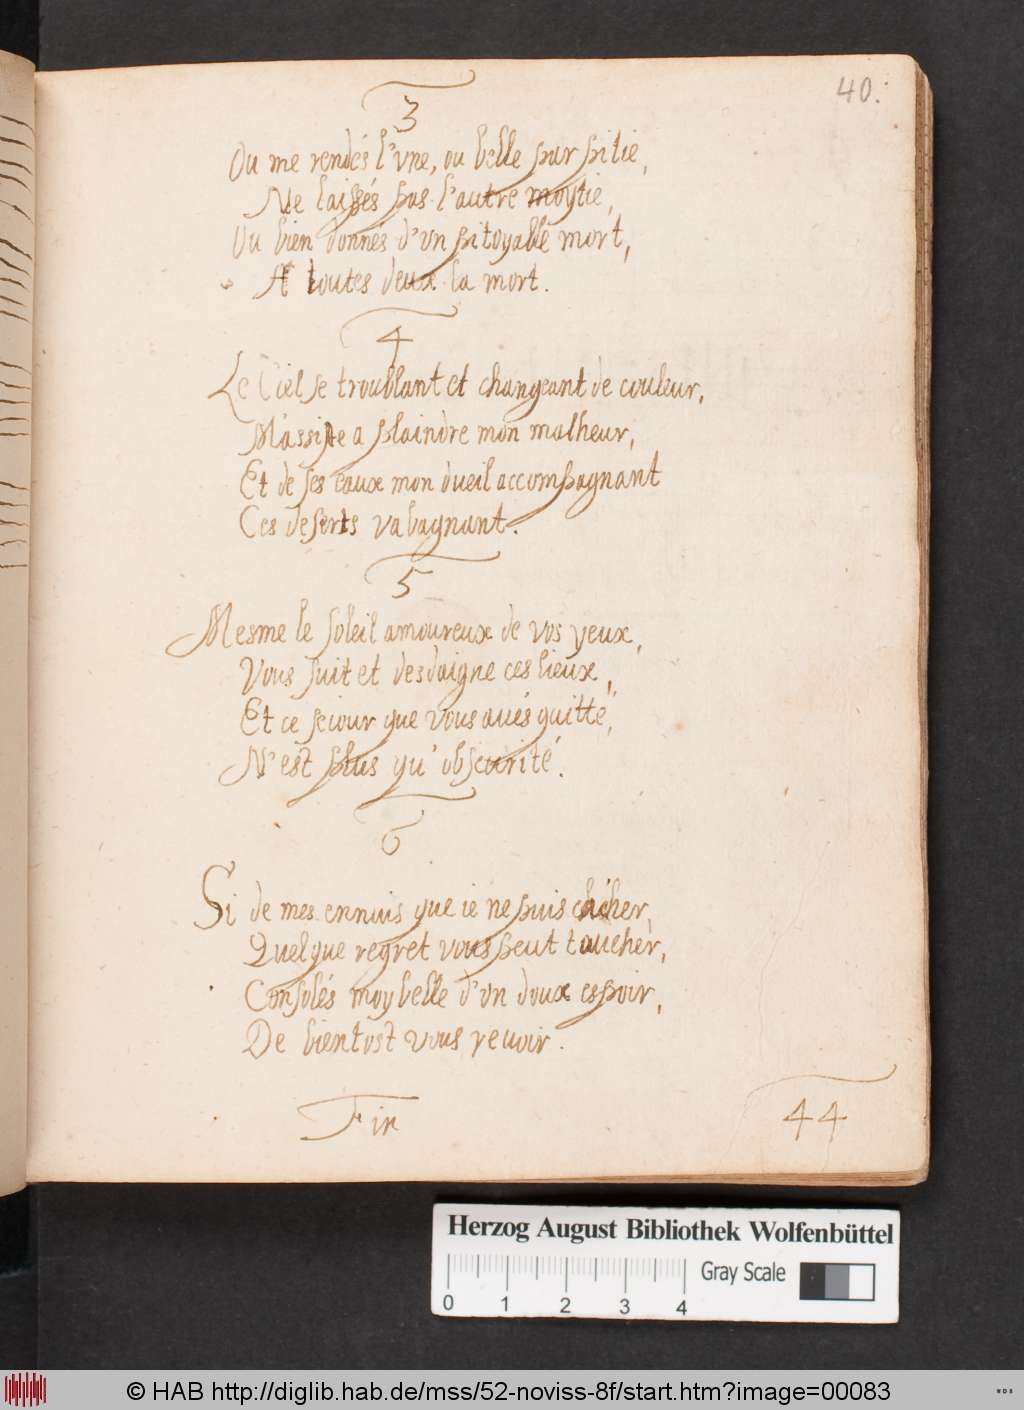 40.
3
Ou me rendés l'vne, ou belle par pitie,
Ne laissés pas l'autre moytie,
Ou bien donnés d'vn pitoyable mort,
A toutes deux la mort.
4
Le Ciel se troublant et changeant de couleur,
M'assiste a plaindre mon malheur,
Et de ses eaux mon dueil accompagnant
Ces deserts va bagnant.
5
Mesme le soleil amoureux de vos yeux,
Vous suit et desdaigne ces lieux,
Et ce seiour que vous aués quitté,
N'est plus qu'obscurité.
6
Si de mes ennuis que ie ne puis cacher,
Quelque regret vous peut toucher,
Consolés moy belle d'vn doux espoir,
De bientost vous reuoir.
Fin
44
Herzog August Bibliothek Wolfenbüttel
Gray Scale
0 1 2 3 4
© HAB http://diglib.hab.de/mss/52-noviss-8f/start.htm?image=00083